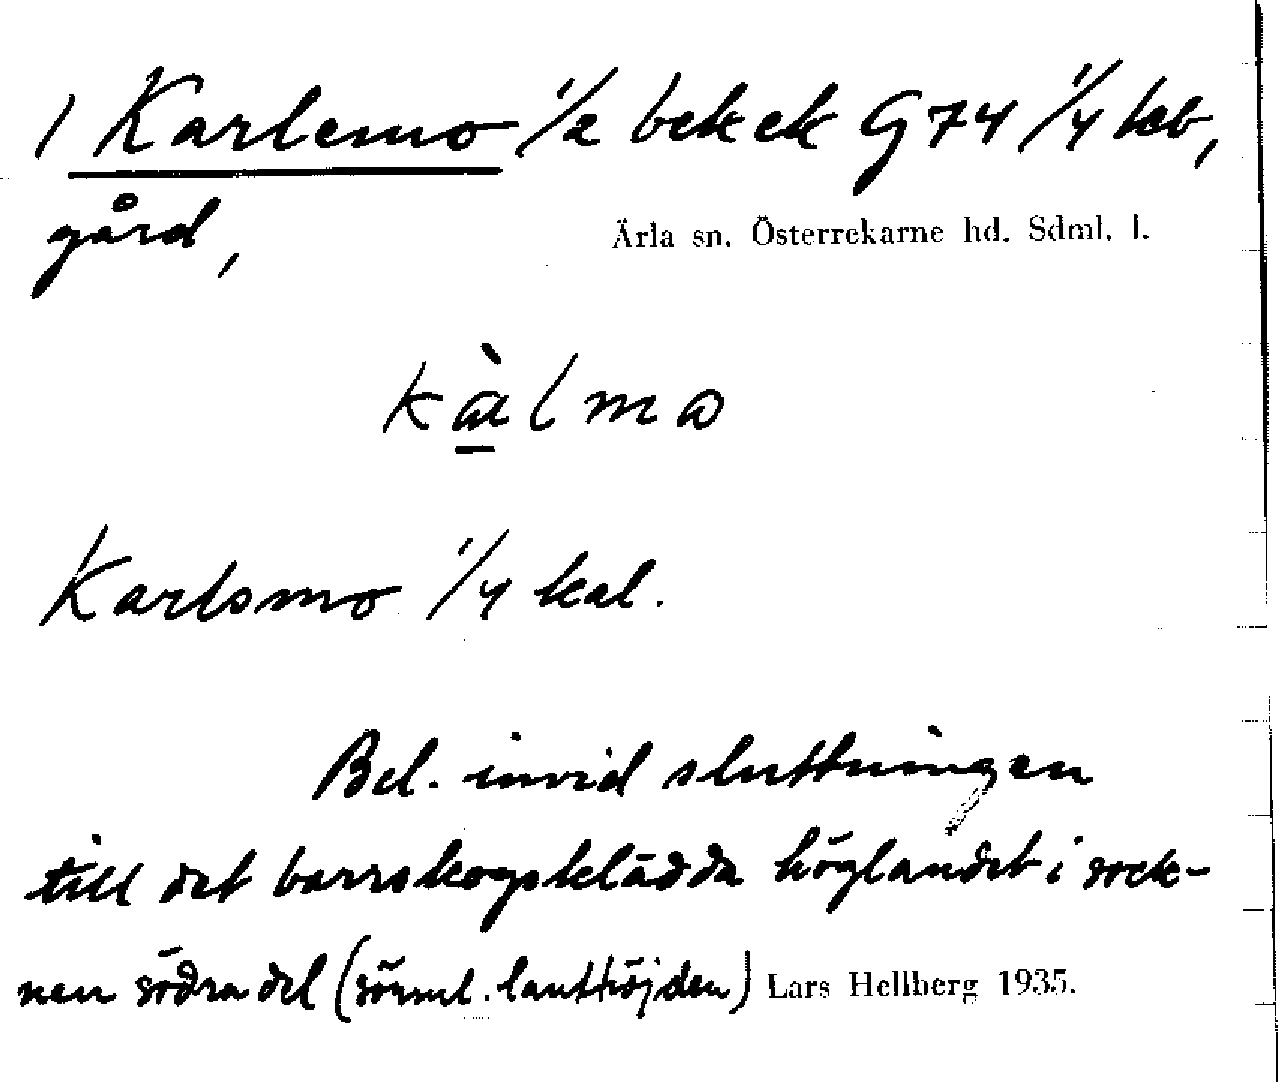 1 Karlemo 1/2 bek ek G74 1/4 leb,
gård,
Ärla sn. Österrekarne hd. Sdml. l.
kàlmo
Karlsmo 1/4 kal.
Bel. invid sluttningen
till det barrskogsklädda höglandet i sock-
nen södra del (sörml. landhöjden) Lars Hellberg 1935.